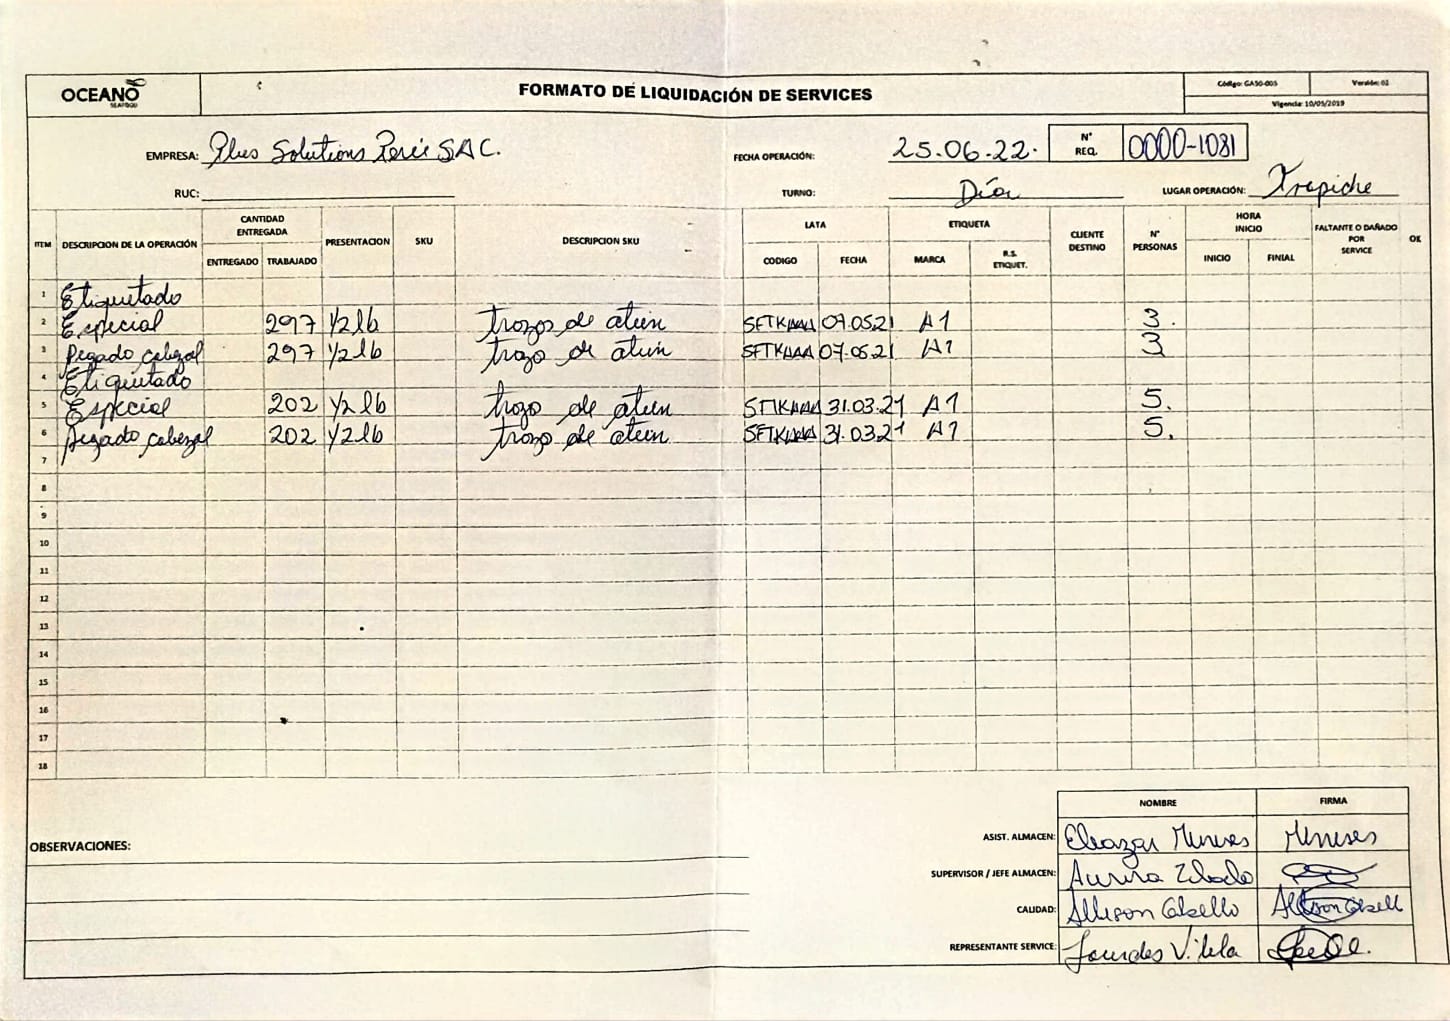 OCEANO
SEAFOOD
FORMATO DE LIQUIDACIÓN DE SERVICES
Código: GA50-005
Versión: 02
Vigencia: 10/05/2019
EMPRESA: Plus Solutions Perú S.A.C.
FECHA OPERACIÓN: 25.06.22.
N° REQ. 0000-1081
RUC:
TURNO: Día
LUGAR OPERACIÓN: Trapiche
ITEM DESCRIPCION DE LA OPERACIÓN CANTIDAD ENTREGADA PRESENTACION SKU DESCRIPCION SKU LATA ETIQUETA CLIENTE DESTINO N° PERSONAS HORA INICIO FALTANTE O DAÑADO POR SERVICE OK
ENTREGADO TRABAJADO CODIGO FECHA MARCA R.S. ETIQUET. INICIO FINIAL
1 Etiquetado
2 Especial 297 1/2 lb trozos de atún 07.05.21 A1 3.
3 Pegado cabezal 297 1/2 lb trozo de atún 07.05.21 A1 3
4 Etiquetado
5 Especial 202 1/2 lb trozo de atún 31.03.21 A1 5.
6 Pegado cabezal 202 1/2 lb trozo de atún 31.03.21 A1 5.
7
8
9
10
11
12
13
14
15
16
17
18
NOMBRE FIRMA
OBSERVACIONES:
ASIST. ALMACEN: Eleazar Meneses Meneses
SUPERVISOR / JEFE ALMACEN:
CALIDAD: Allison
REPRESENTANTE SERVICE: Lourdes Vilela